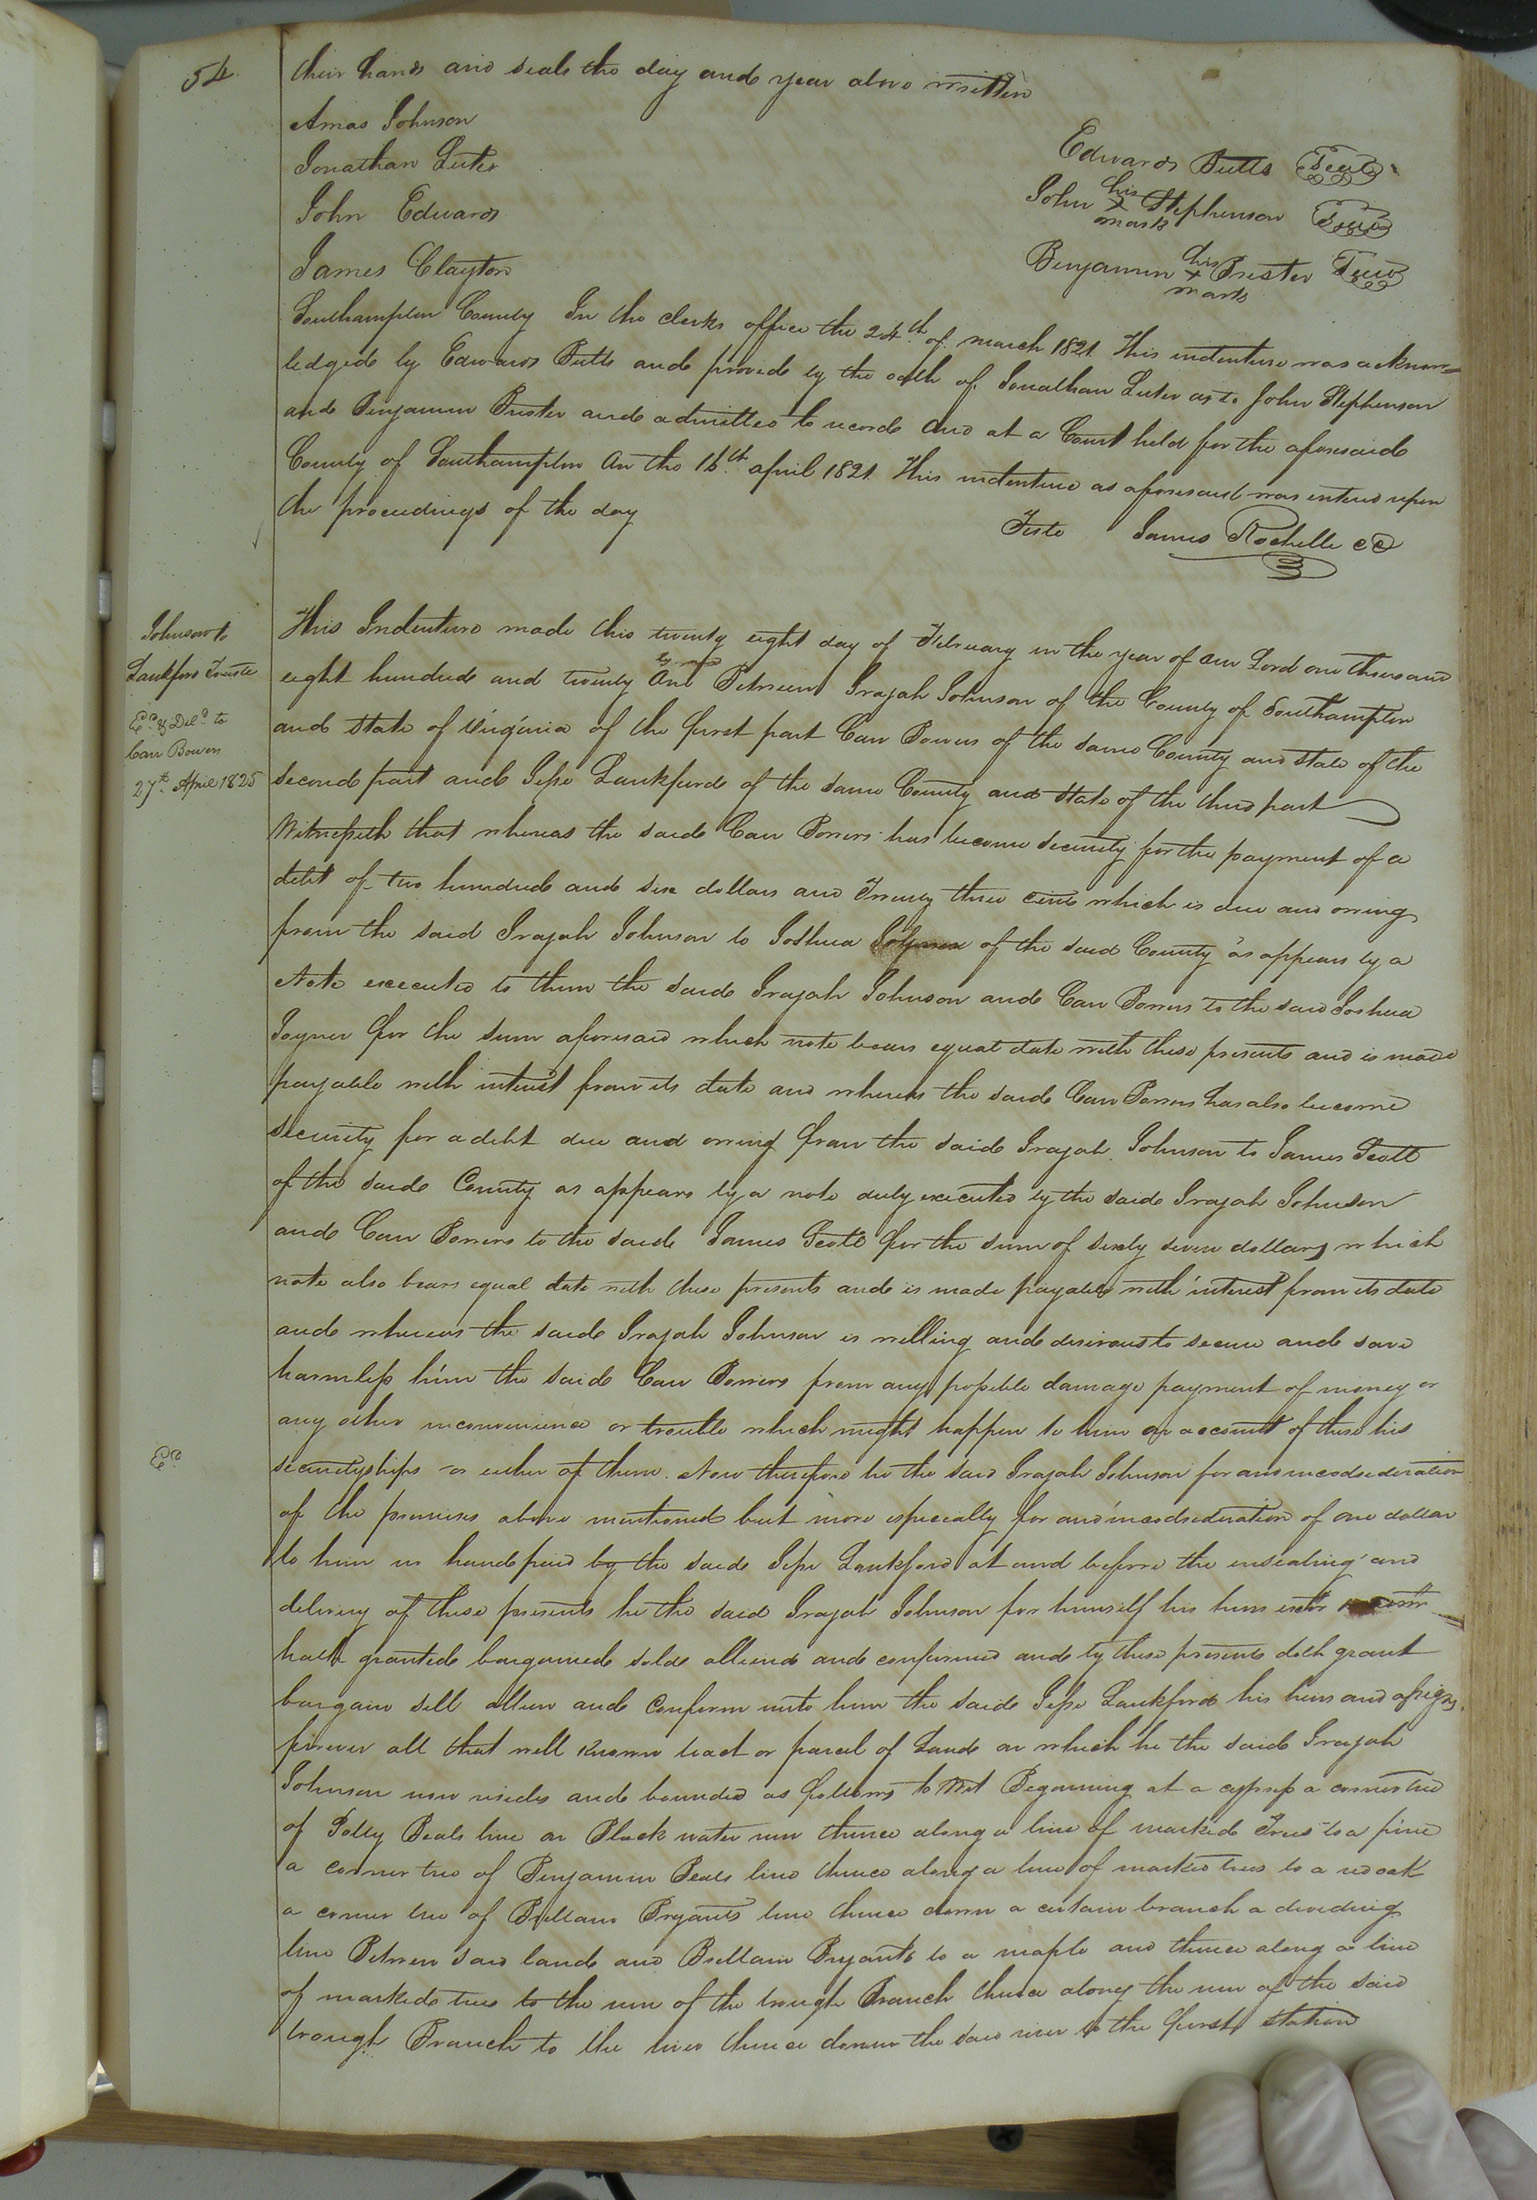 54.
their hands and seals the day and year above written
Amos Johnson
Jonathan Luter
John Edwards
James Clayton
Edwards Butts Seal
John his X mark Stephenson Seal
Benjamin his X mark Prister Seal
Southampton County In the clerks office the 24th of march 1821 This indenture was acknow=
ledged by Edwards Butts and proved by the oath of Jonathan Luter as to John Stephenson
and Benjamin Prister and admitted to record And at a Court held for the aforesaid
County of Southampton on the 16th april 1821 This indenture as aforesaid was entered upon
the proceedings of the day
Teste James Rochelle CC
Johnson to
Lankford Trustee
Exd & Deld to
Carr Bowers
27th April 1825
This Indenture made this twenty eight day of February in the year of our Lord one thousand
eight hundred and twenty one Between Irajah Johnson of the County of Southampton
and State of Virginia of the first part Carr Bowers of the same County and State of the
second part and Jesse Lankford of the same County and State of the third part
Witnesseth that whereas the said Carr Bowers has become security for the payment of a
debt of two hundred and six dollars and Twenty three cents which is due and owing
from the said Irajah Johnson to Joshua Joyner of the said County as appears by a
Note executed to them the said Irajah Johnson and Carr Bowers to the said Joshua
Joyner for the sum aforesaid which note bears equal date with these presents and is made
payable with interest from its date and whereas the said Carr Bowers has also become
security for a debt due and owing from the said Irajah Johnson to James Scott
of the said County as appears by a note duly executed by the said Irajah Johnson
and Carr Bowers to the said James Scott for the sum of sixty seven dollars which
note also bears equal date with these presents and is made payable with interest from its date
and whereas the said Irajah Johnson is willing and desirous to secure and save
harmless him the said Carr Bowers from any possible damage payment of money or
any other inconvenience or trouble which might happen to him on account of these his
Exd
securityships or either of them. Now therefore he the said Irajah Johnson for and in consideration
of the premises above mentioned but more especially for and in consideration of one dollar
to him in hand paid by the said Jesse Lankford at and before the ensealing and
delivery of these presents he the said Irajah Johnson for himself his heirs
hath granted bargained sold aliend and confirmed and by these presents doth grant
bargain sell alien and Conform unto him the said Jesse Lankford his heirs and assigns
forever all that well known tract or parcel of Land on which he the said Irajah
Johnson now resides and bounded as follows to Wit Begenning at a cypress a corner tree
of Polly Beals line on Black water run thence along a line of marked Trees to a pine
a corner tree of Benjamin Beals line thence along a line of marked trees to a red oak
a corner tree of Brittain Bryants line thence down a certain branch a dividing
line Between said land and Brittain Bryants to a maple and thence along a line
of marked trees to the run of the trough Branch thence along the run of the said
trough Branch to the river thence down the said river to the first station